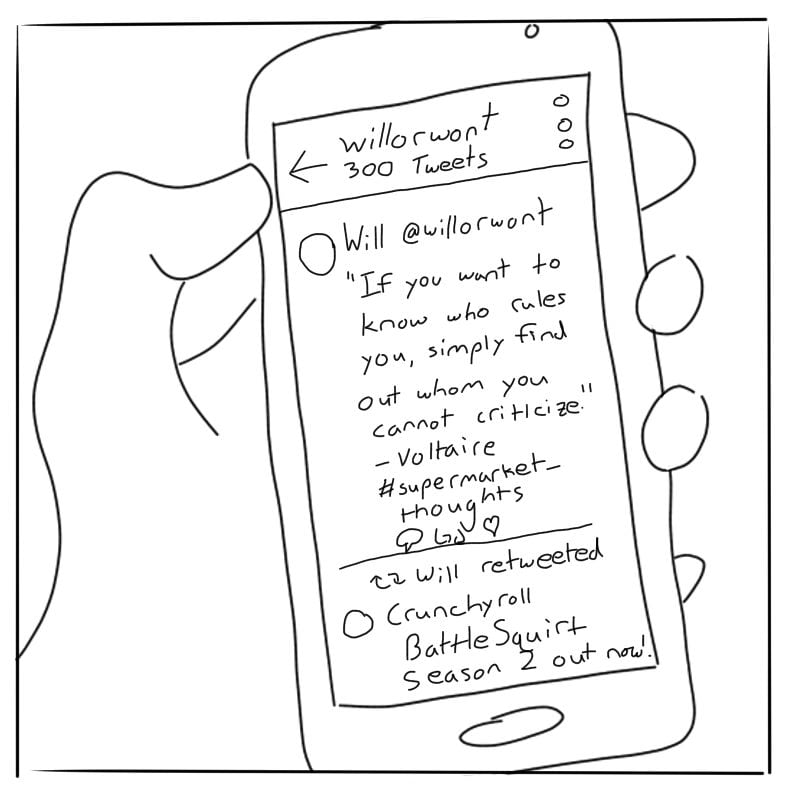 willorwont
300 Tweets
Will @willorwont
"If you want to
know who rules
you, simply find
out whom you
cannot criticize."
- Voltaire
#supermarket_
thoughts
Will retweeted
Crunchyroll
BattleSquirt
Season 2 out now!